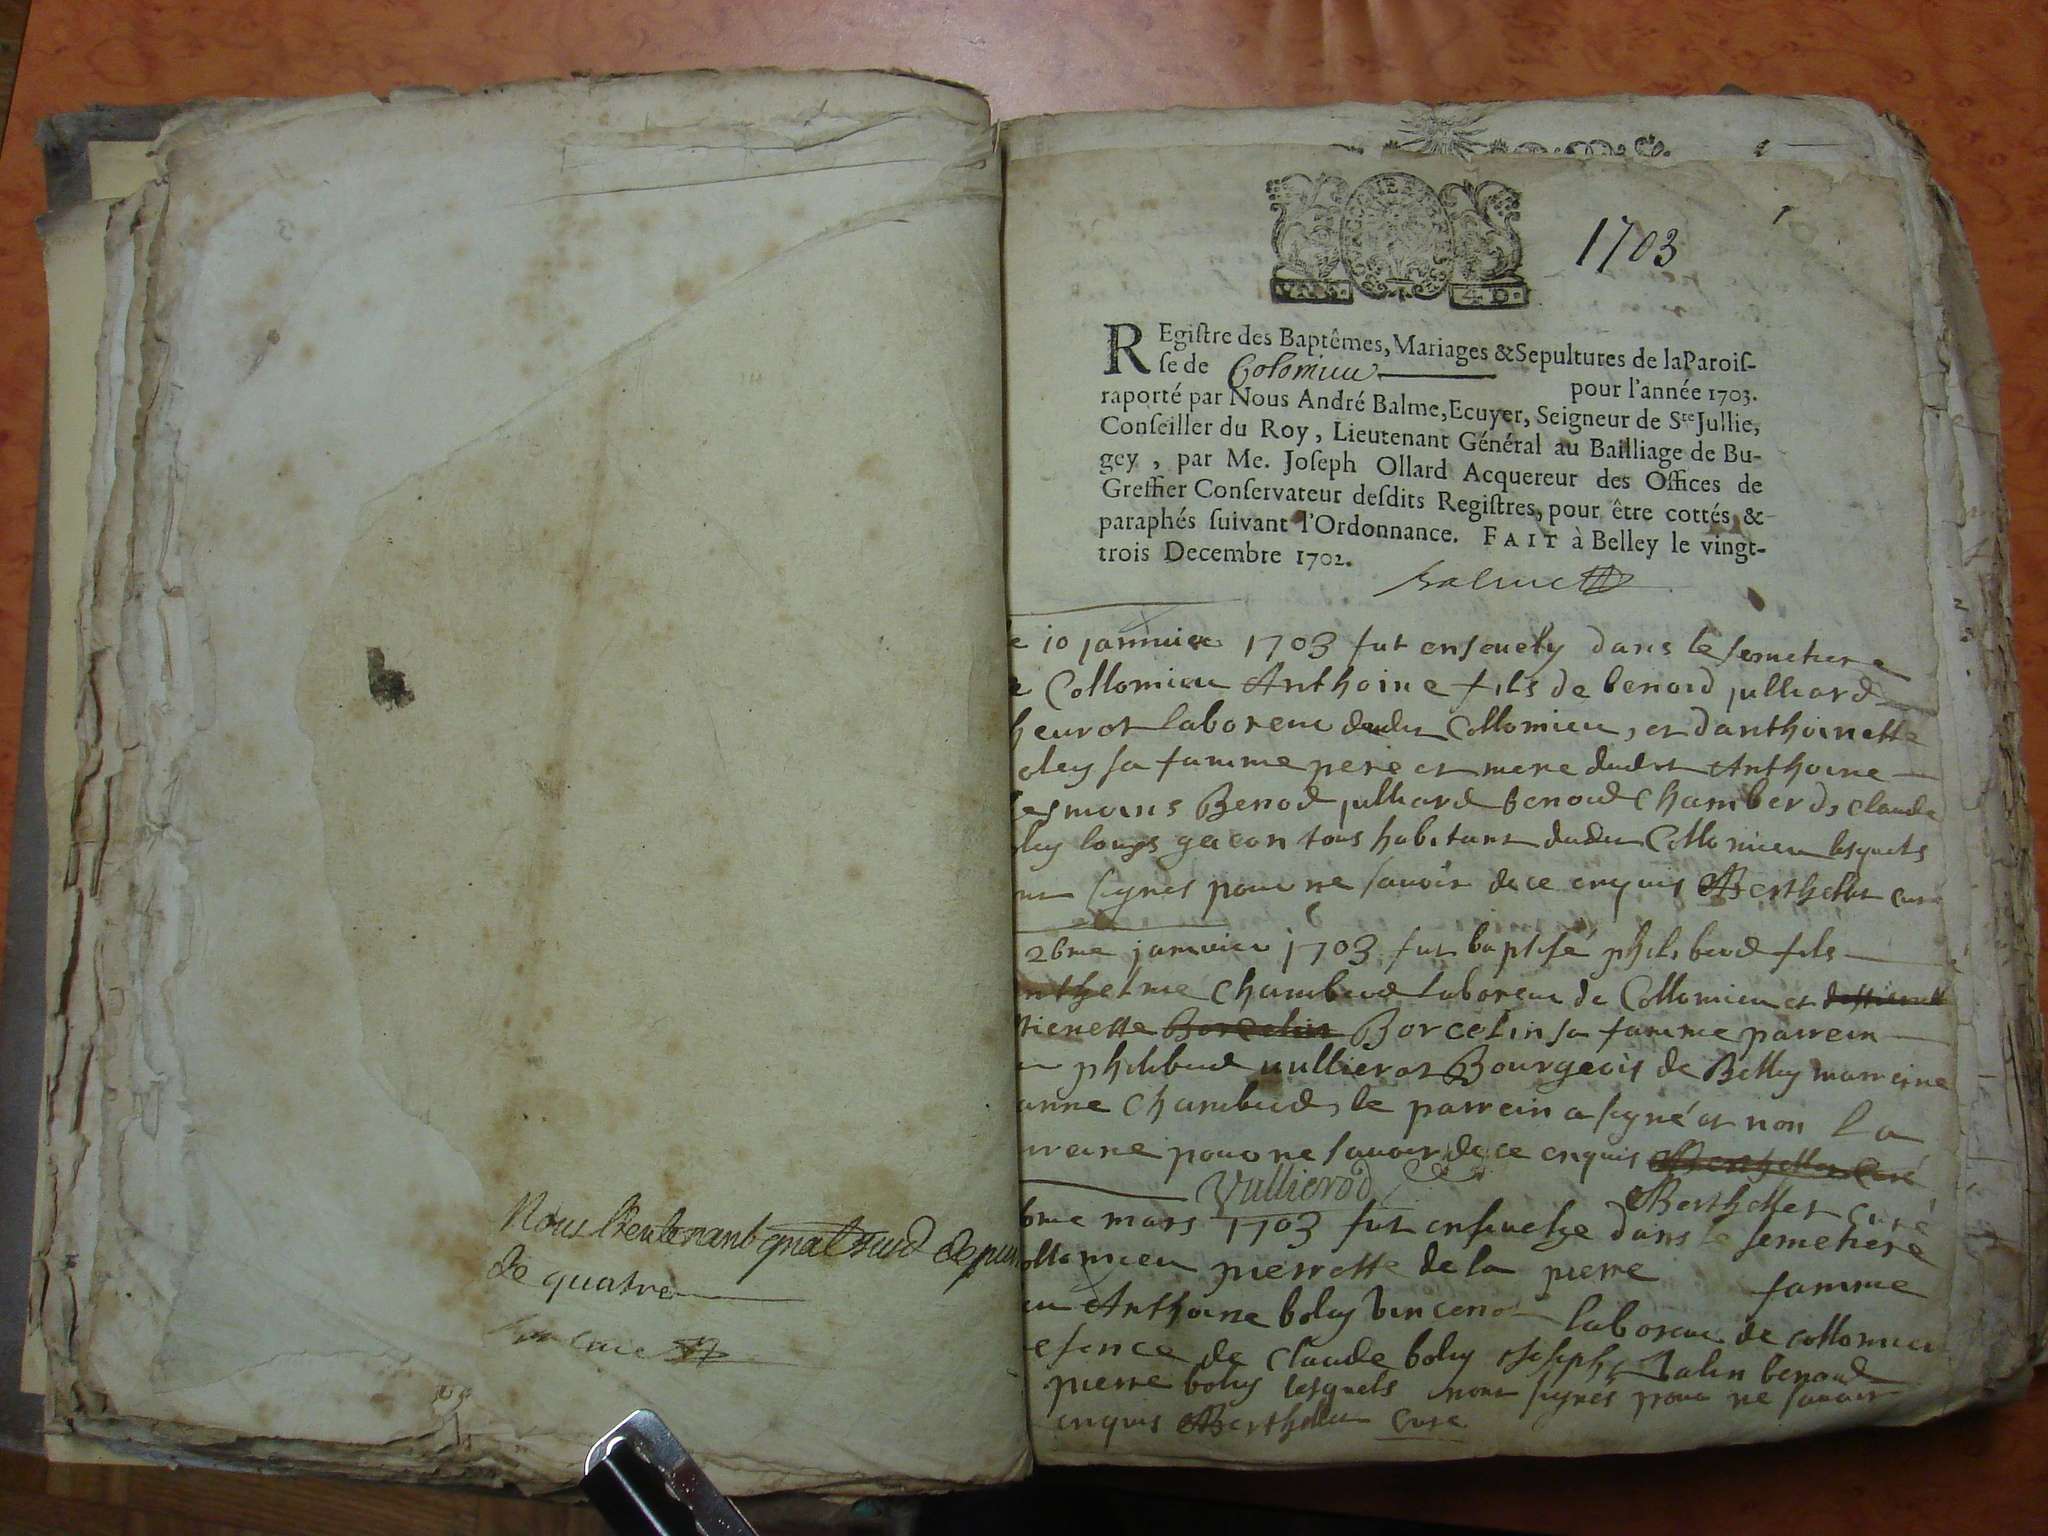 Nous Lieutenant gnal
de quatre
1703
4 D.
REgiſtre des Baptêmes, Mariages & Sepultures de la Paroiſ-
ſe de Colomieu pour l'année 1703.
raporté par Nous André Balme, Ecuyer, Seigneur de Ste Jullie,
Conſeiller du Roy, Lieutenant Général au Bailliage de Bu-
gey, par Me. Joſeph Ollard Acquereur des Offices de
Greffier Conſervateur deſdits Regiſtres, pour être cottés &
paraphés ſuivant l'Ordonnance. FAIT à Belley le vingt-
trois Decembre 1702.
Balme
e 10 janvier 1703 fut ensevely dans le semetiere
e Collomieu Anthoine fils de benoid julliard
laboreur dudit Collomieu, et danthoinette
sa famme pere et mere dudit Anthoine
Benoid julliard benoid Chamberd, claude
louys gacon tous habitant dudit Collomieu lesquels
signes pour ne savoir de ce enquis Berthellet curé
26me janvier 1703 fut baptisé philiberd fils
nthelme Chamberd laboreur de Collomieu et destienette
tienette Borcelin Borcelin sa famme parrein
philiberd vullierot Bourgeois de Belley marreine
anne Chamberd, le parrein a signé et non la
rreine pour ne savoir de ce enquis Berthellet Curé
Vullierod
Berthellet curé
6me mars 1703 fut ensevelye dans le semetiere
ollomieu pierrette de la pierre famme
Anthoine boley vincenot laboreur de collomieu
esence de claude boley joseph benoid
pierre boley lesquels nont signes pour ne savoir
enquis Berthellet Curé